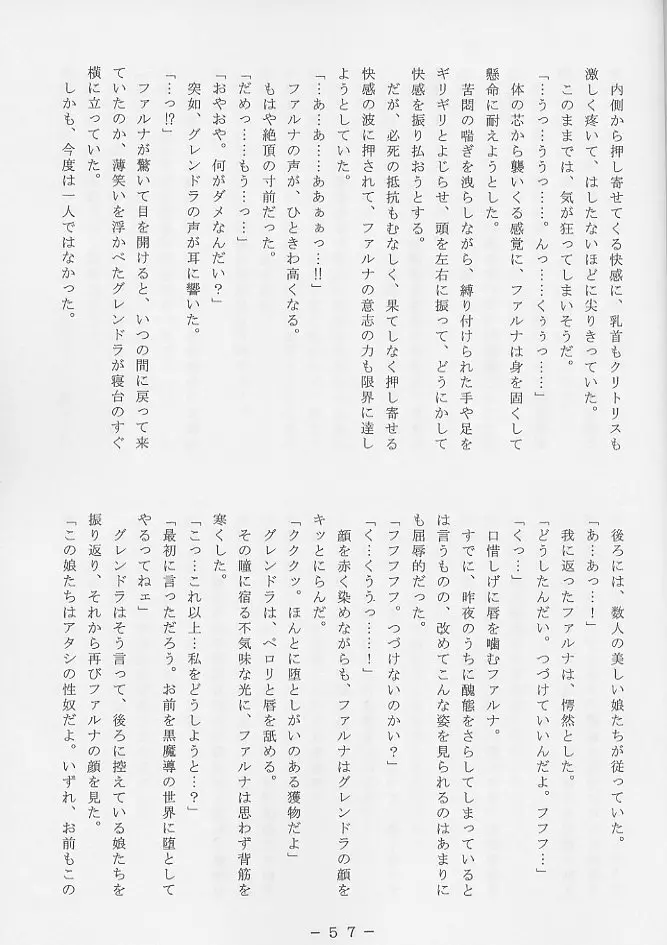 内側から押し寄せてくる快感に、乳首もクリトリスも
激しく疼いて、はしたないほどに尖りきっていた。
このままでは、気が狂ってしまいそうだ。
「…うっ……ううっ……。んっ……くぅぅっ……」
体の芯から襲いくる感覚に、ファルナは身を固くして
懸命に耐えようとした。
苦悶の喘ぎを洩らしながら、縛り付けられた手や足を
ギリギリとよじらせ、頭を左右に振って、どうにかして
快感を振り払おうとする。
だが、必死の抵抗もむなしく、果てしなく押し寄せる
快感の波に押されて、ファルナの意志の力も限界に達し
ようとしていた。
「…あ…あ……ああぁぁっ…!!」
ファルナの声が、ひときわ高くなる。
もはや絶頂の寸前だった。
「だめっ……もう…っ…」
「おやおや。何がダメなんだい？」
突如、グレンドラの声が耳に響いた。
「…っ!?」
ファルナが驚いて目を開けると、いつの間に戻って来
ていたのか、薄笑いを浮かべたグレンドラが寝台のすぐ
横に立っていた。
しかも、今度は一人ではなかった。
後ろには、数人の美しい娘たちが従っていた。
「あ…あっ…！」
我に返ったファルナは、愕然とした。
「どうしたんだい。つづけていいんだよ。フフフ…」
「くっ…」
口惜しげに唇を噛むファルナ。
すでに、昨夜のうちに醜態をさらしてしまっていると
は言うものの、改めてこんな姿を見られるのはあまりに
も屈辱的だった。
「フフフフフ。つづけないのかい？」
「く…くううっ……！」
顔を赤く染めながらも、ファルナはグレンドラの顔を
キッとにらんだ。
「ククククッ。ほんとに堕としがいのある獲物だよ」
グレンドラは、ペロリと唇を舐める。
その瞳に宿る不気味な光に、ファルナは思わず背筋を
寒くした。
「こっ…これ以上…私をどうしようと…？」
「最初に言っただろう。お前を黒魔導の世界に堕として
やるってねェ」
グレンドラはそう言って、後ろに控えている娘たちを
振り返り、それから再びファルナの顔を見た。
「この娘たちはアタシの性奴だよ。いずれ、お前もこの
－５７－